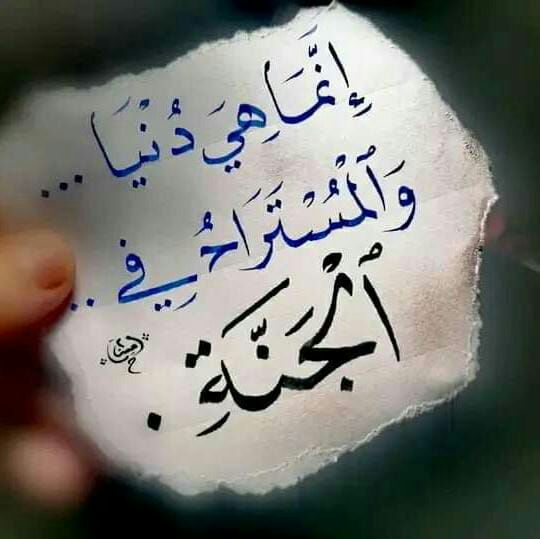 إِنَّمَا هِيَ دُنْيَا ...
وَٱلْمُسْتَرَاحُ فِي ..
ٱلْجَنَّةِ .